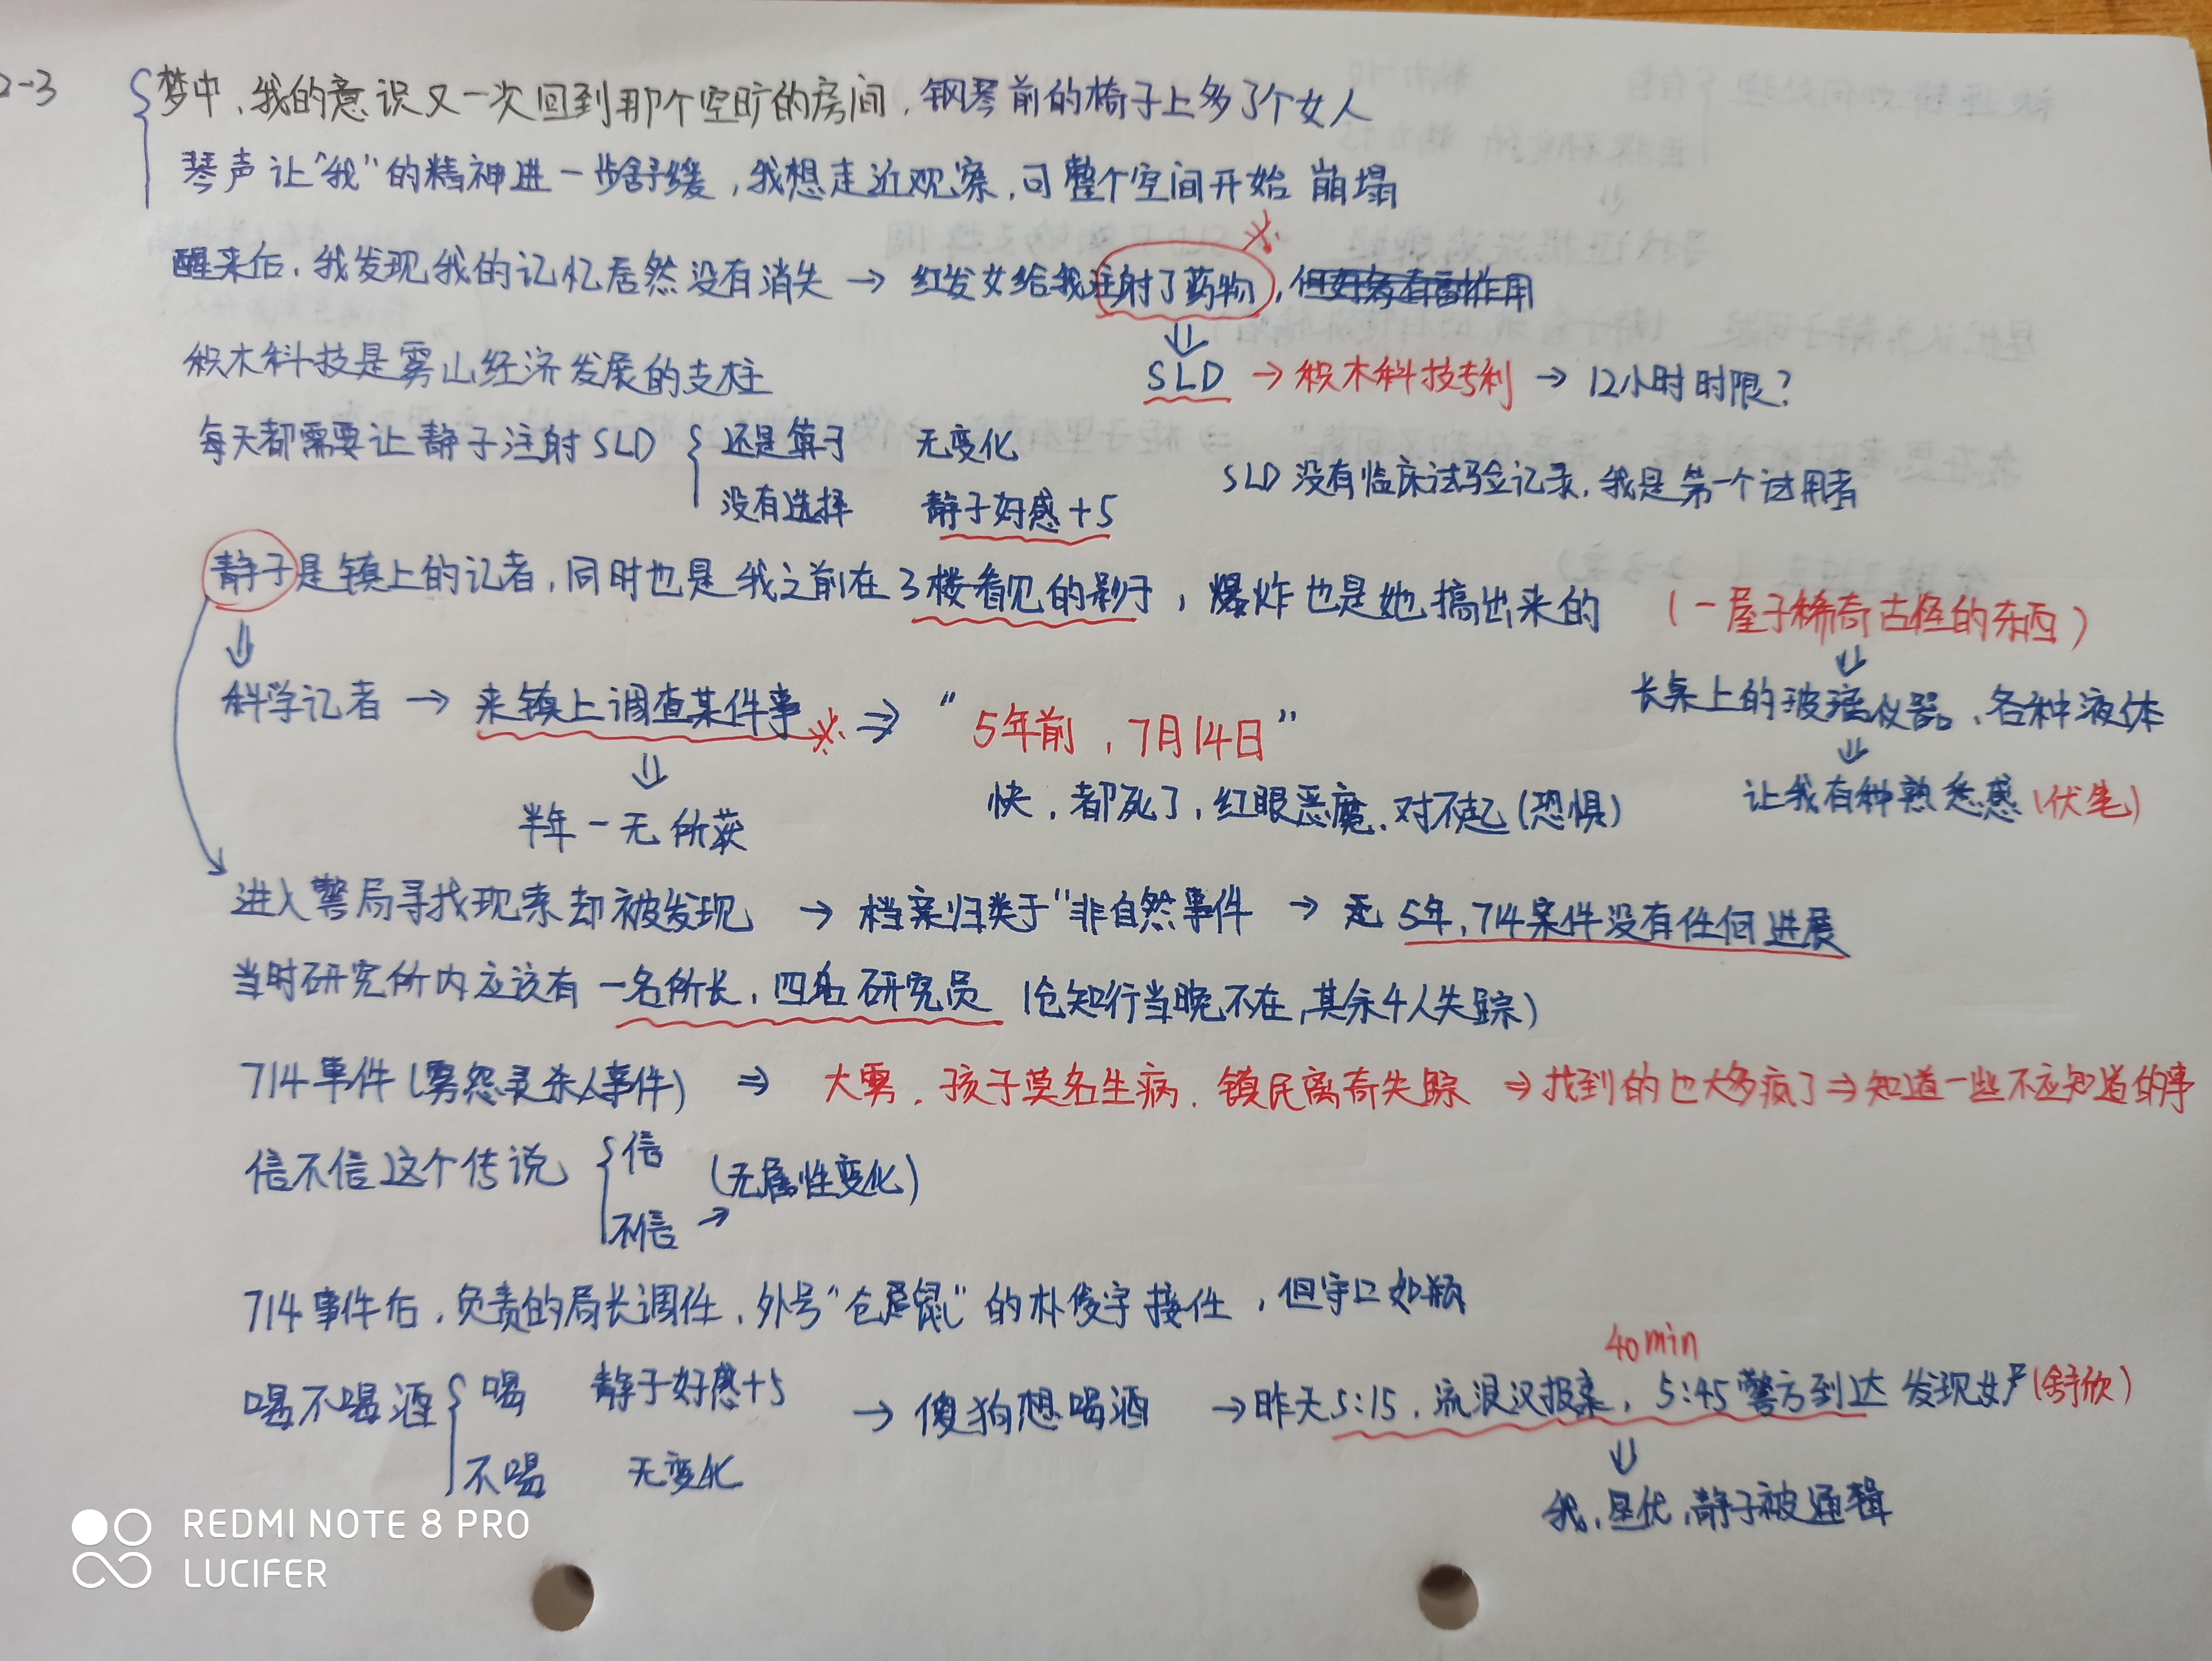 2-3 梦中，我的意识又一次回到那个空旷的房间，钢琴前的椅子上多了个女人
琴声让“我”的精神进一步舒缓，我想走近观察，可整个空间开始崩塌
醒来后，我发现我的记忆居然没有消失 → 红发女给我注射了药物，
积木科技是雾山经济发展的支柱
SLD → 积木科技专利 → 12小时时限？
每天都需要让静子注射SLD { 还是算了 无变化
没有选择 静子好感+5
SLD没有临床试验记录，我是第一个试用者
静子是镇上的记者，同时也是我之前在3楼看见的影子，爆炸也是她搞出来的 （一屋子稀奇古怪的东西）
⇓
长桌上的玻璃仪器、各种液体
⇓
让我有种熟悉感（伏笔）
科学记者 → 来镇上调查某件事 ⇒ “5年前，7月14日”
快，都死了，红眼恶魔，对不起（恐惧）
半年一无所获
进入警局寻找现索却被发现 → 档案归类于“非自然事件 → 5年，714案件没有任何进展
当时研究所内应该有一名所长，四名研究员（仓知行当晚不在，其余4人失踪）
714事件（雾怨灵杀人事件） ⇒ 大雾，孩子莫名生病，镇民离奇失踪 ⇒ 找到的也大多疯了 ⇒ 知道一些不应知道的事
信不信这个传说 { 信 （无属性变化）
不信 →
714事件后，负责的局长调任，外号“仓鼠”的朴俊宇接任，但守口如瓶
喝不喝酒 { 喝 静子好感+5
不喝 无变化
→ 傻狗想喝酒 → 昨天5:15，流浪汉报案，5:45警方到达 发现女尸（舒欣）
40min
⇓
我，昱优，静子被通缉
REDMI NOTE 8 PRO
LUCIFER